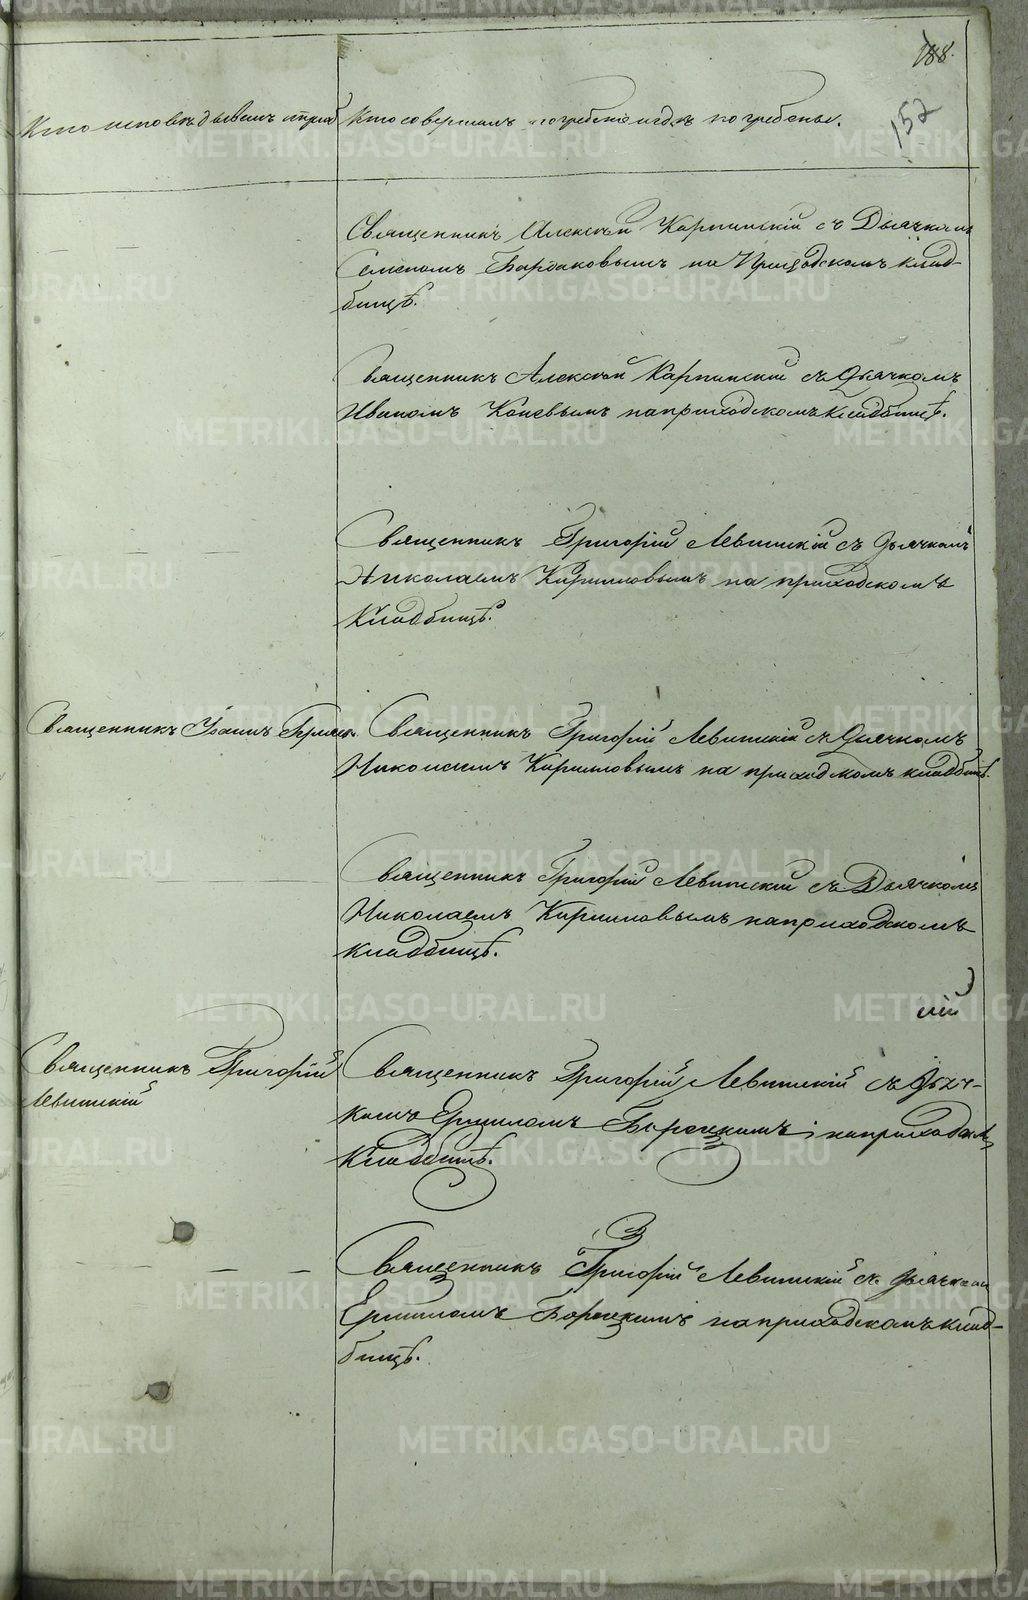 188.
152
Кто исповѣдывалъ и пріоб
Кто совершалъ погребеніе и гдѣ погребены.
Священникъ Алексѣй Карпинскій съ Дьячкомъ
Семеномъ Бардаковымъ на Приходскомъ клад-
бищѣ.
Священникъ Алексѣй Карпинскій съ Дьячкомъ
Иваномъ Каневымъ на приходскомъ кладбищѣ.
Священникъ Григорій Левитскій съ дьячкомъ
Николаемъ Кирилловымъ на приходскомъ
Кладбищѣ.
Священникъ Іоаннъ
Священникъ Григорій Левитскій съ Дьячкомъ
Николаемъ Кирилловымъ на приходскомъ кладбищѣ.
Священникъ Григорій Левитскій съ Дьячкомъ
Николаемъ Кирилловымъ на приходскомъ
кладбищѣ.
Священникъ Григорій
Левитскій
Священникъ Григорій Левитскій съ Дьяч-
комъ Ермиломъ на приходском
Кладбищѣ.
Священникъ Григорій Левитскій съ дьячком
Ермиломъ на приходскомъ клад-
бищѣ.
METRIKI.GASO-URAL.RU